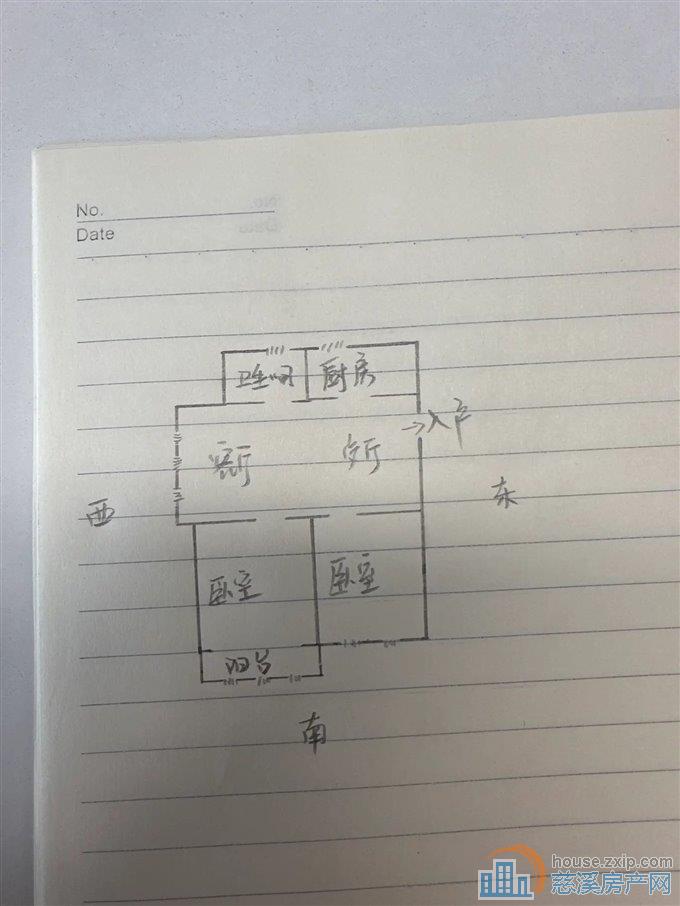 No.
Date
卫生间 厨房
入户
客厅 餐厅
西
东
卧室 卧室
阳台
南
house.zxip.com
慈溪房产网